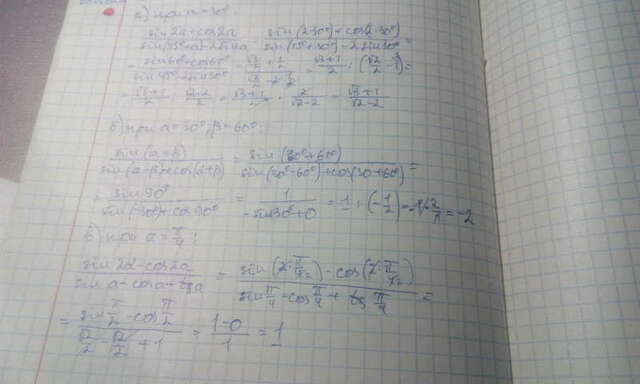 а) при a=30°
sin2a+cos2a / sin(15°+a)-2sina = sin(2·30°)+cos(2·30°) / sin(15°+30°)-2sin30° =
= sin60°+cos60° / sin45°-2sin30° = √3/2+1/2 / √2/2-2·1/2 = √3+1/2 : (√2/2-1)=
= √3+1/2 : √2-2/2 = √3+1/2 · 2/√2-2 = √3+1/√2-2
б) при a=30°; β=60°:
sin(a+β) / sin(a-β)+cos(a+β) = sin(30°+60°) / sin(30°-60°)+cos(30+60°) =
= sin90° / sin(-30°)+cos90° = 1 / -sin30°+0 = 1 : (-1/2) = -1·2/1 = -2
в) при a=π/4:
sin2a-cos2a / sina-cosa+tga = sin(2·π/4)-cos(2·π/4) / sin π/4-cos π/4+tg π/4 =
= sin π/2-cos π/2 / √2/2-√2/2+1 = 1-0/1 = 1